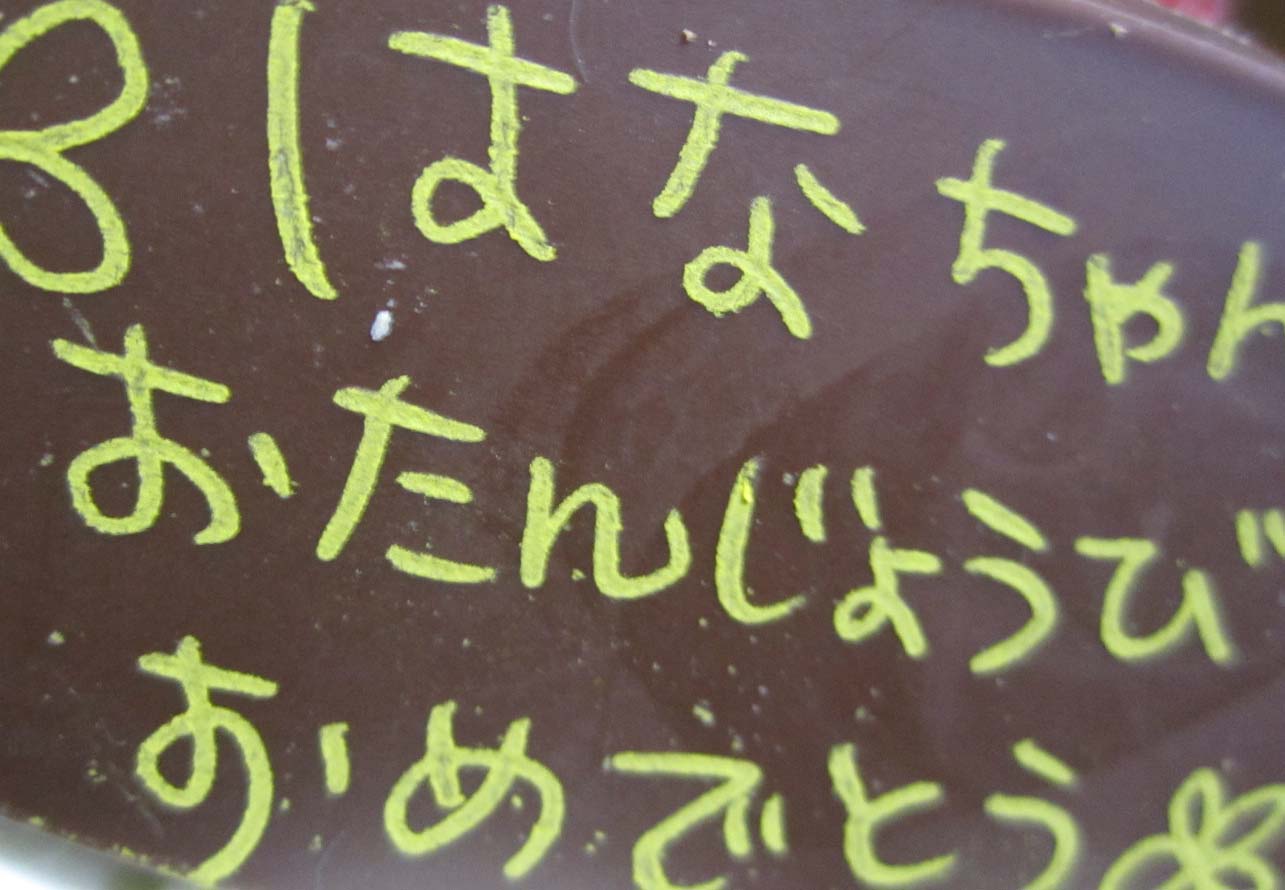 はなちゃん
おたんじょうび
おめでとう